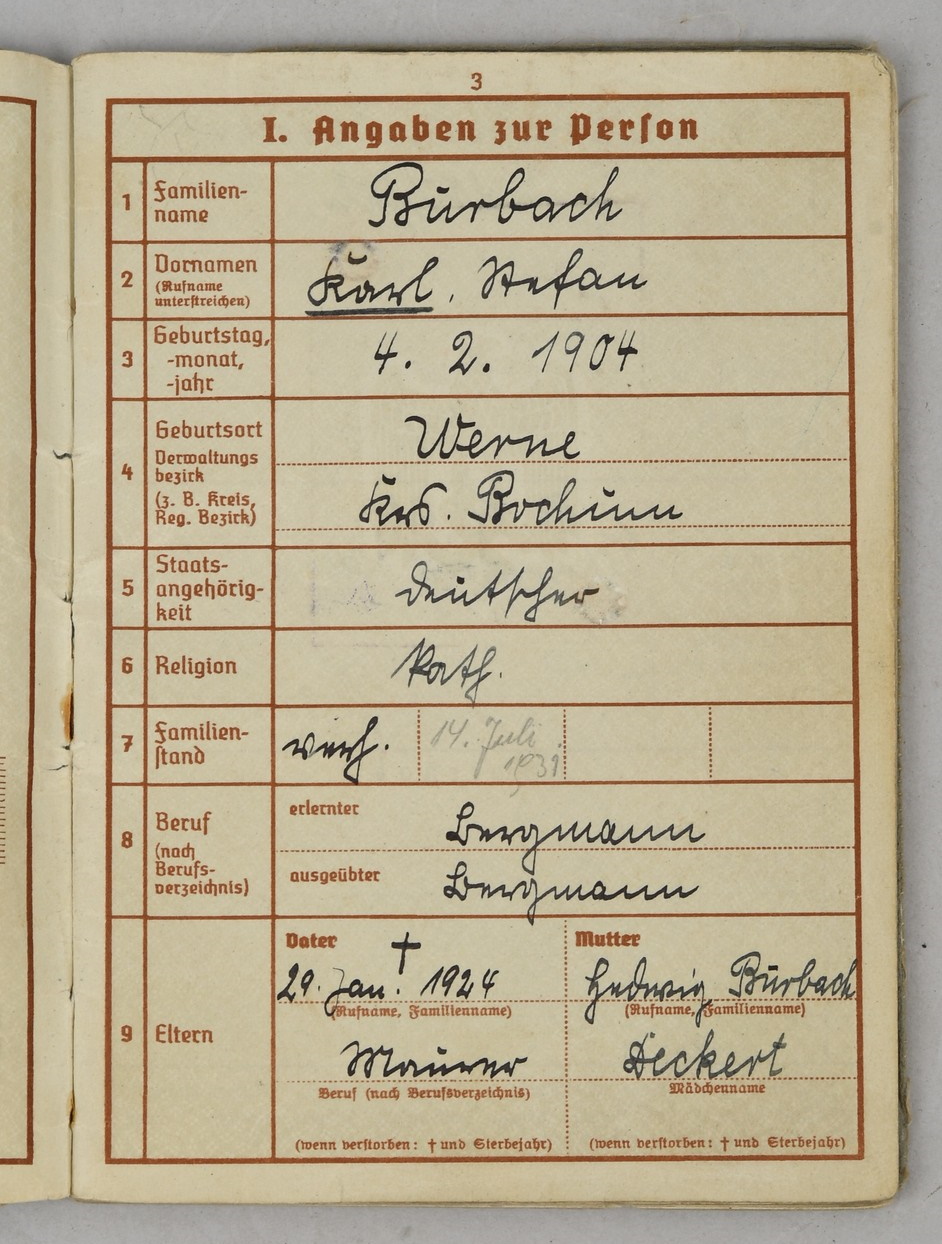 3
I. Angaben zur Person
1 Familien-
name
Burbach
2 Vornamen
(Rufname
unterstreichen)
Karl, Stefan
3 Geburtstag,
-monat,
-jahr
4. 2. 1904
4 Geburtsort
Verwaltungs
bezirk
(z. B. Kreis,
Reg. Bezirk)
Werne
Krs. Bochum
5 Staats-
angehörig-
keit
deutscher
6 Religion
kath.
7 Familien-
stand
verh.
14. Juli
1931
8 Beruf
(nach
Berufs-
verzeichnis)
erlernter
Bergmann
ausgeübter
Bergmann
9 Eltern
Vater †
29. Jan. 1924
(Rufname, Familienname)
Maurer
Beruf (nach Berufsverzeichnis)
(wenn verstorben: † und Sterbejahr)
Mutter
Hedwig Burbach
(Rufname, Familienname)
Deckert
Mädchenname
(wenn verstorben: † und Sterbejahr)